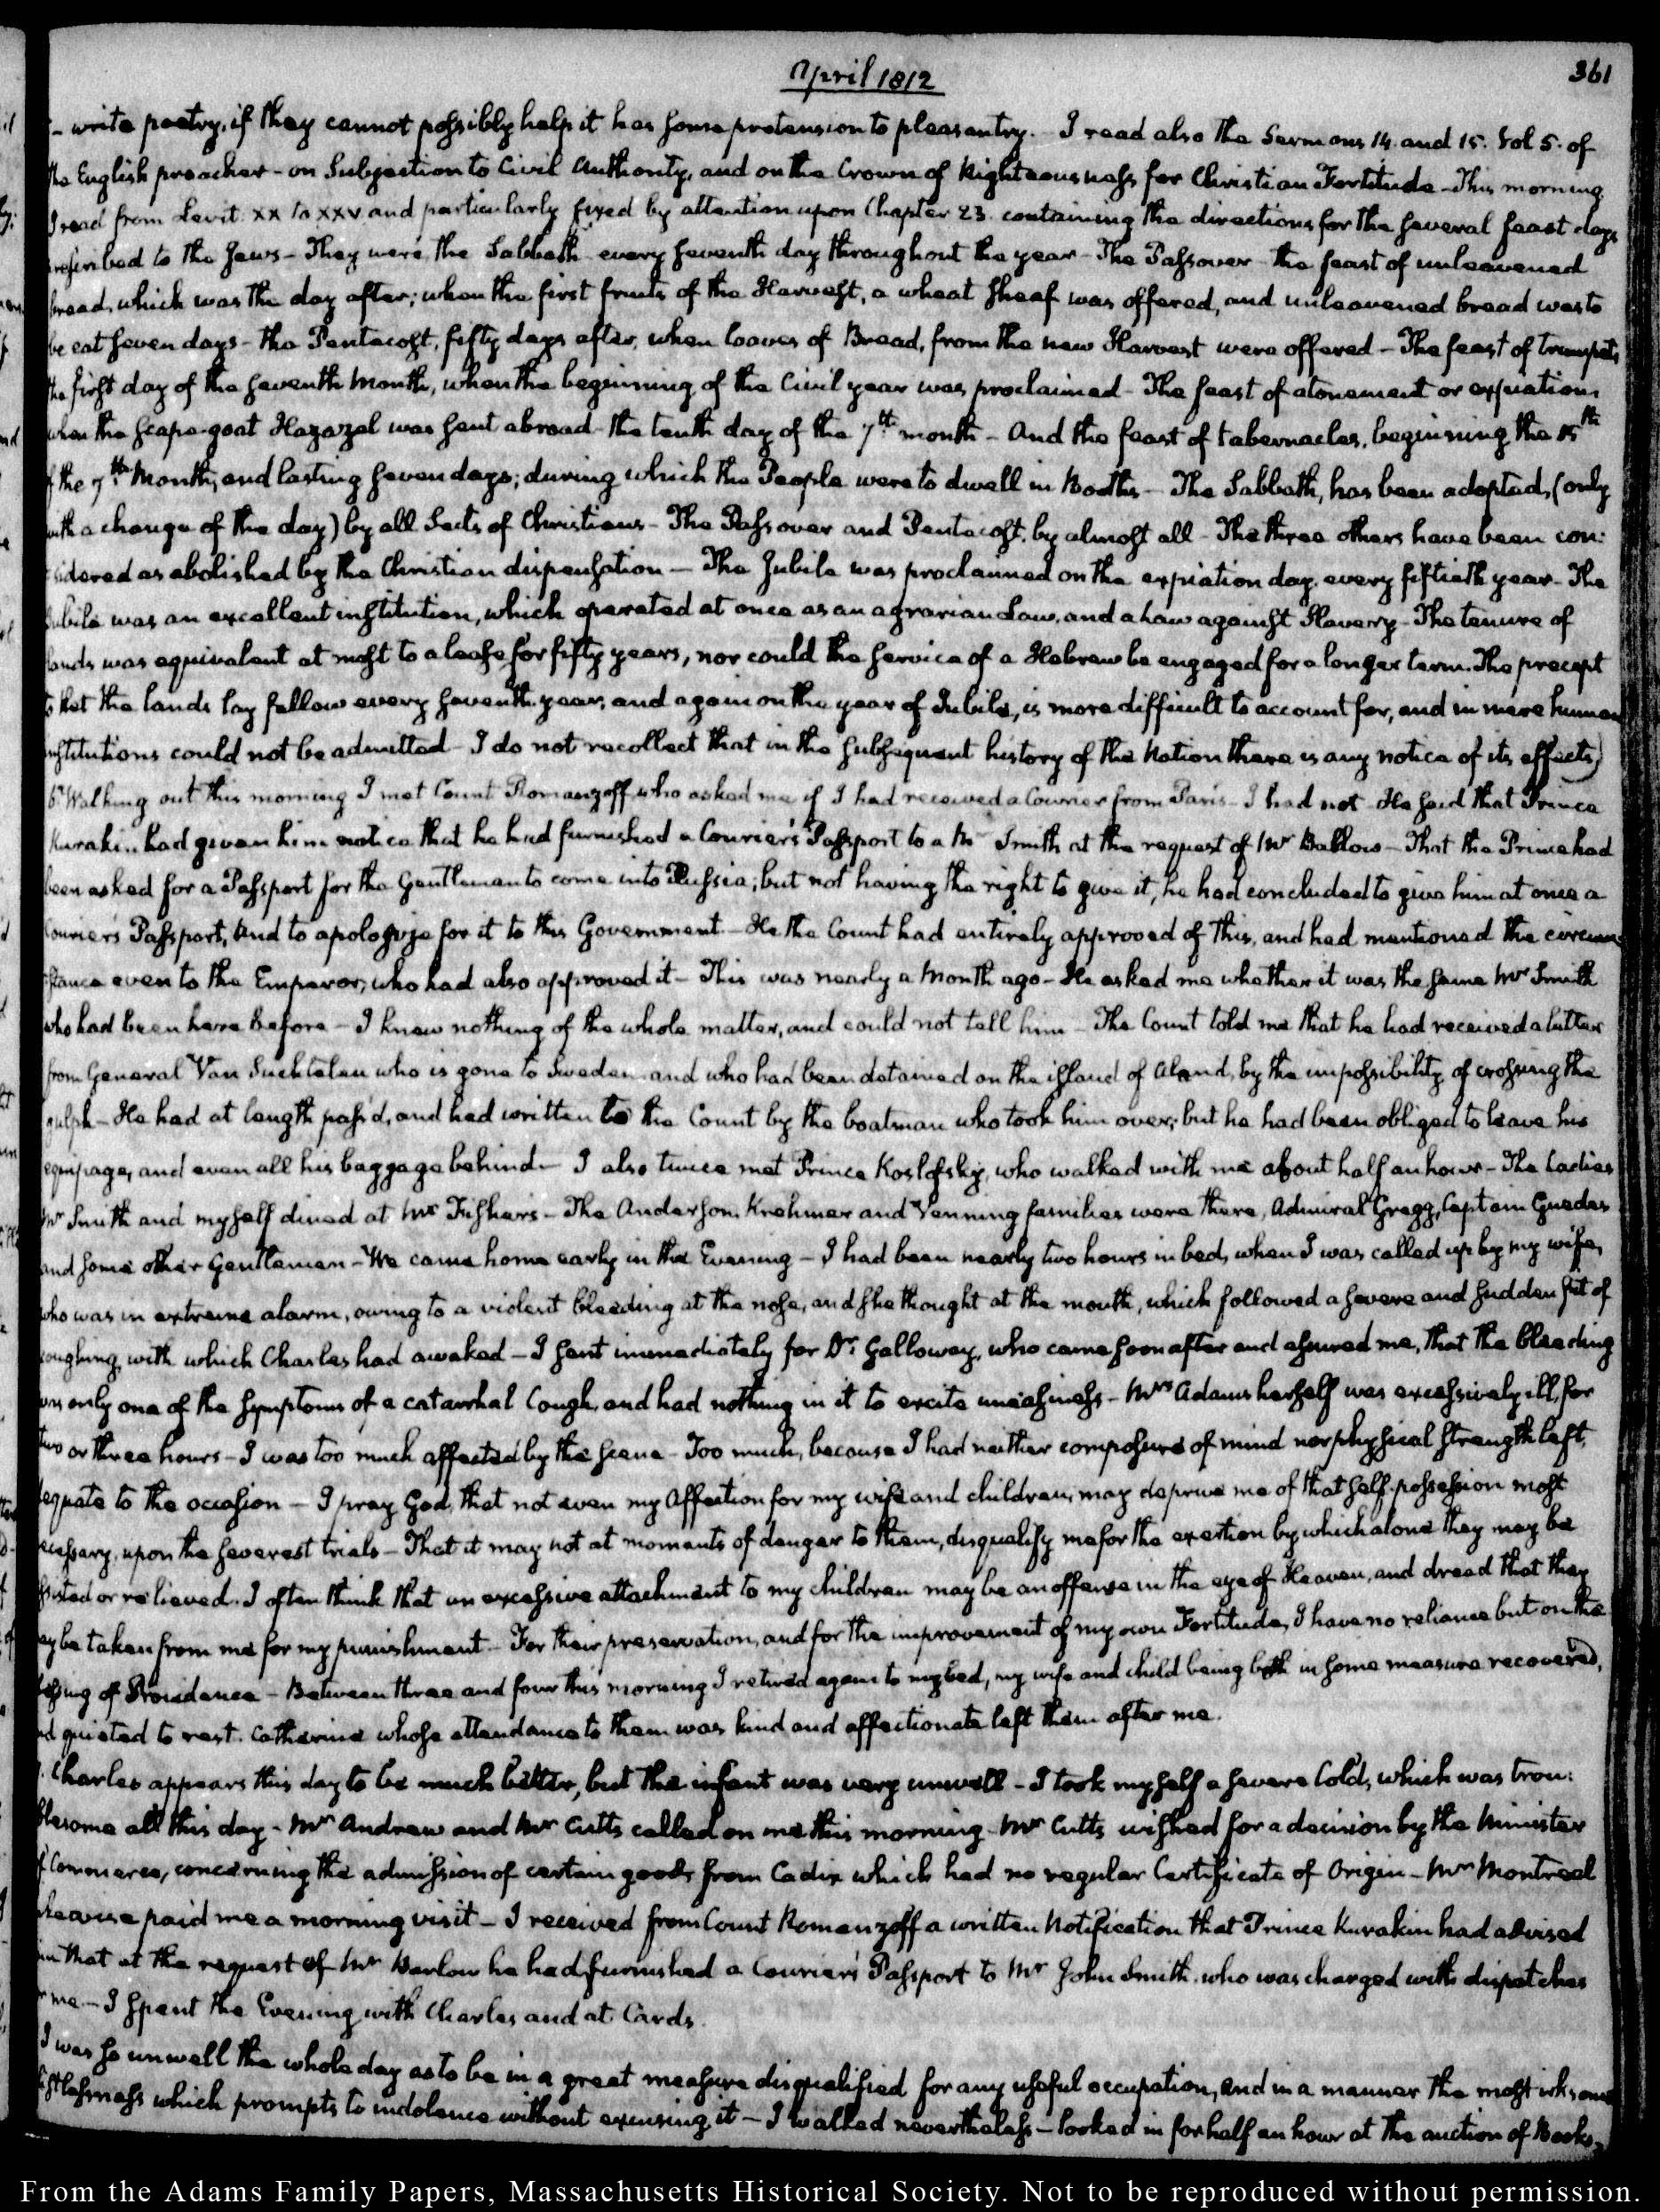 April 1812
361
write poetry, if they cannot possibly help it has some pretension to pleasantry. - I read also the Sermons 14. and 15. Vol 5. of
the English preacher - on Subjection to Civil Authority, and on the Crown of Righteousness for Christian Fortitude - This morning
I read from Levit. XX to XXV and particularly fixed my attention upon Chapter 23. containing the directions for the several feast days
prescribed to the Jews - They were the Sabbath every seventh day throughout the year - The Passover the feast of unleavened
bread, which was the day after; when the first fruits of the Harvest, a wheat sheaf was offered, and unleavened bread was to
be eat seven days - the Pentecost, fifty days after, when loaves of Bread, from the new Harvest were offered - The feast of trumpets
the first day of the seventh Month, when the beginning of the Civil year was proclaimed - The feast of atonement or expiation,
when the scape-goat Hazazel was sent abroad - the tenth day of the 7th month - And the feast of tabernacles, beginning the 15th
of the 7th Month, and lasting seven days; during which the People were to dwell in Booths - The Sabbath, has been adopted, (only
with a change of the day) by all Sects of Christians - The Passover and Pentecost, by almost all - The three others have been con:
sidered as abolished by the Christian dispensation - The Jubile was proclaimed on the expiation day, every fiftieth year - The
Jubile was an excellent institution, which operated at once as an agrarian Law, and a Law against Slavery - The tenure of
lands was equivalent at most to a lease for fifty years, nor could the service of a Hebrew be engaged for a longer term. The precept
to let the lands lay fallow every seventh year, and again on the year of Jubile, is more difficult to account for, and in mere human
institutions could not be admitted - I do not recollect that in the subsequent history of the Nation there is any notice of its effects)
6. Walking out this morning I met Count Romanzoff who asked me if I had received a Courier from Paris - I had not - He said that Prince
Kurakin had given him notice that he had furnished a Courier's Passport to a Mr Smith at the request of Mr Barlow - That the Prince had
been asked for a Passport for the Gentleman to come into Russia; but not having the right to give it, he had concluded to give him at once a
Courier's Passport, and to apologize for it to this Government - He the Count had entirely approved of this, and had mentioned the circum
stance even to the Emperor, who had also approved it - This was nearly a Month ago - He asked me whether it was the same Mr Smith
who had been here before - I knew nothing of the whole matter, and could not tell him - The Count told me that he had received a letter
from General Van Suchtelen who is gone to Sweden and who had been detained on the island of Aland, by the impossibility of crossing the
gulph - He had at length pass'd, and had written to the Count by the boatman who took him over; but he had been obliged to leave his
equipage, and even all his baggage behind - I also twice met Prince Koslofsky, who walked with me about half an hour - The Ladies
Mr Smith and myself dined at Mr Fisher's - The Anderson, Krehmer and Venning families were there, Admiral Gregg, Captain Guedes
and some other Gentlemen - We came home early in the Evening - I had been nearly two hours in bed, when I was called up by my wife,
who was in extreme alarm, owing to a violent bleeding at the nose, and she thought at the mouth, which followed a severe and sudden fit of
coughing, with which Charles had awaked - I sent immediately for Dr Galloway, who came soon after and assured me, that the bleeding
was only one of the symptoms of a catarrhal Cough, and had nothing in it to excite uneasiness - Mrs Adams herself was excessively ill, for
two or three hours - I was too much affected by the scene - Too much, because I had neither composure of mind nor physical strength left,
adequate to the occasion - I pray God, that not even my Affection for my wife and children, may deprive me of that self-possession most
necessary, upon the severest trials - That it may not at moments of danger to them, disqualify me for the exertion by which alone they may be
assisted or relieved. I often think that an excessive attachment to my children may be an offense in the eye of Heaven, and dread that they
may be taken from me for my punishment - For their preservation, and for the improvement of my own Fortitude, I have no reliance but on the
blessing of Providence - Between three and four this morning I retired again to my bed, my wife and child being both in some measure recovered,
and quieted to rest. Catherine whose attendance to them was kind and affectionate left them after me.
7. Charles appears this day to be much better, but the infant was very unwell - I took myself a severe Cold, which was trou:
blesome all this day - Mr Andrew and Mr Cutts called on me this morning - Mr Cutts wished for a decision by the Minister
of Commerce, concerning the admission of certain goods from Cadix which had no regular Certificate of Origin - Mr Montreal
likewise paid me a morning visit - I received from Count Romanzoff a written Notification that Prince Kurakin had advised
him that at the request of Mr Barlow he had furnished a Courier's Passport to Mr John Smith who was charged with dispatches
for me - I spent the Evening with Charles and at Cards.
I was so unwell the whole day as to be in a great measure disqualified for any useful occupation, and in a manner the most irksome
listlessness which prompts to indolence without excusing it - I walked nevertheless - looked in for half an hour at the auction of Books,
From the Adams Family Papers, Massachusetts Historical Society. Not to be reproduced without permission.